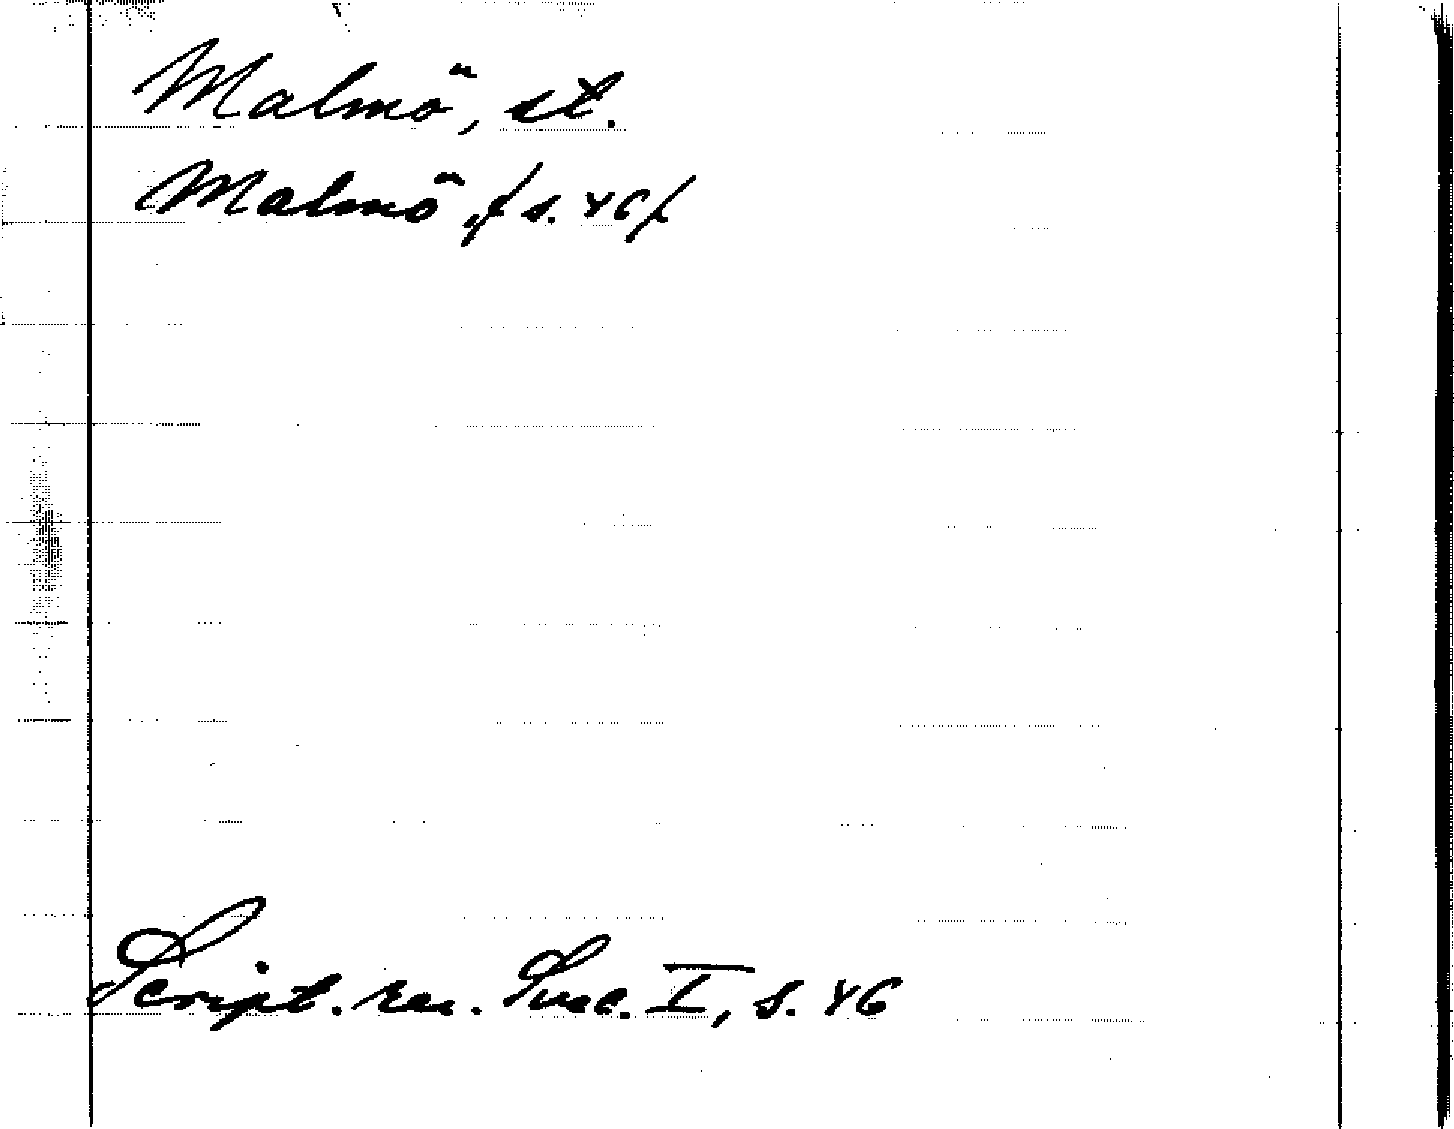 Malmö, st.
Malmö, /s. 46/
Script. rer. Suec. I, s. 46